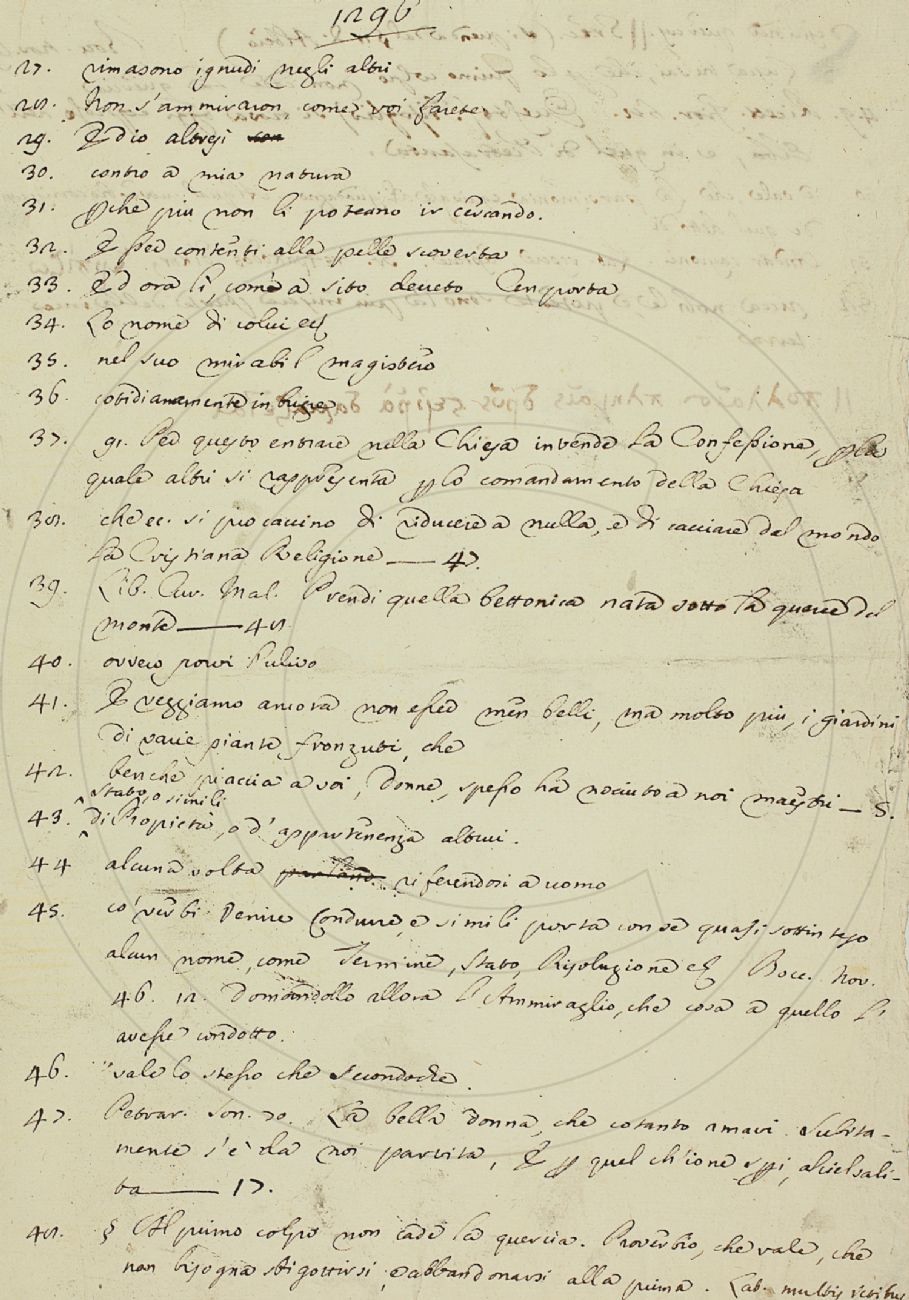 1296
27. rimasono ignudi negli altri
28. Non s'ammiraron come voi farete
29. E dio altresi son
30. contro a mia natura
31. ꝑche piu non li poteano ir cercando.
32. E fur contenti alla pelle scoverta
33. Ed ora lì, com'a sito decreto Cen porta
34. Lo nome di colui ec.
35. nel suo mirabil magistero
36. cotidianamente in brige
37. 91. Per questo entrare nella Chiesa intende la Confessione, ꝑ la
quale altri si rappresenta ꝑ lo comandamento della Chiesa
38. che ec. si procaccino di riducere a nulla, e di cacciare del mondo
la Cristiana Religione —— 47.
39. Lib. Cur. Mal. Prendi quella bettonica nata sotto la querce del
monte —— 48
40. ovvero porvi l'ulivo
41. E veggiamo ancora non esser men belli, ma molto piu, i giardini
di varie piante fronzuti, che
42. benche piaccia a voi, donne, spesso ha nociuto a noi maestri — 5.
stato, o simili
43. di Propietà, o d'appartenenza altrui.
44 alcuna volta riferendosi a uomo
45. co' verbi Venire Condurre, e simili porta con se quasi sottinteso
alcun nome, come Termine, Stato, Risoluzione ec. Bocc. Nov.
46. 12. Domandollo allora l'Ammiraglio, che cosa a quello l'
avesse condotto.
46. vale lo stesso che Secondoche.
47. Petrar. Son. 70. La bella donna, che cotanto amavi Subita-
mente s'è da noi partita, E ꝑ quel ch'io ne speri, al ciel sali-
ta —— 17.
48. § Al primo colpo non cade la quercia. Proverbio, che vale, che
non bisogna sbigottirsi, e abbandonarsi alla prima. Lat. multis ictibus